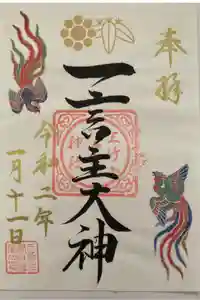 奉拝
一言主大神
令和二年
一月十一日